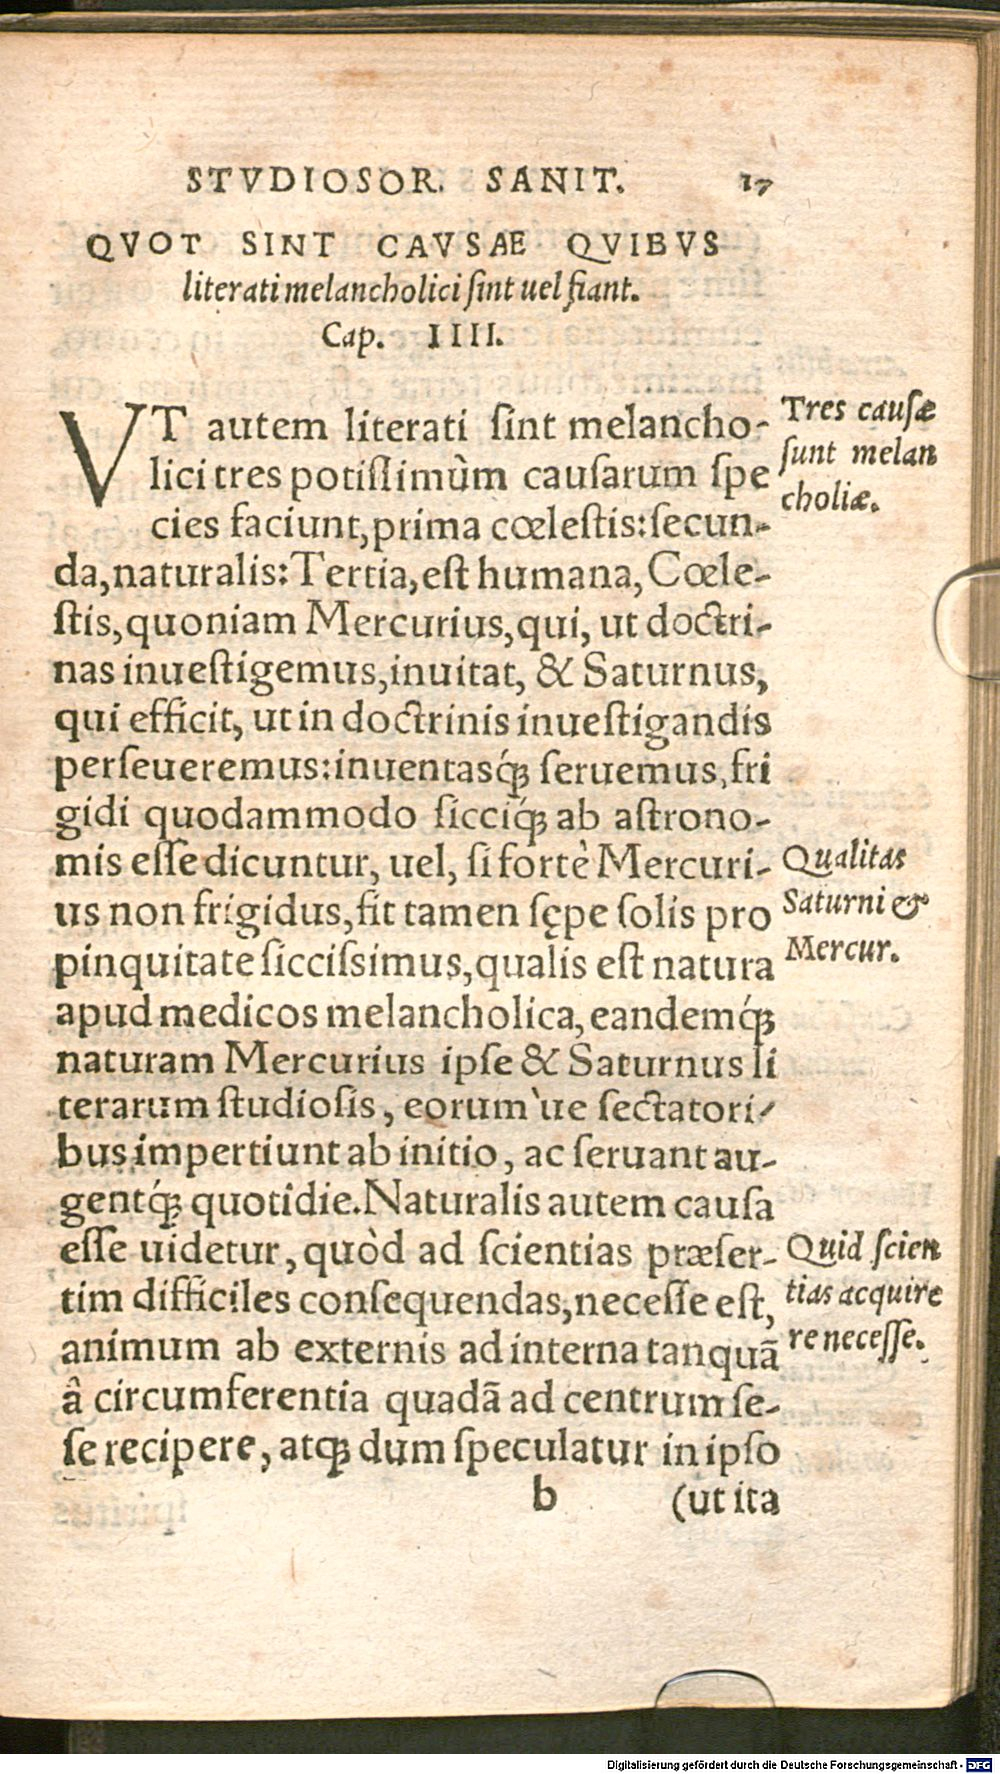 STVDIOSOR. SANIT. 17
QVOT SINT CAVSAE QVIBVS
literati melancholici ſint uel fiant.
Cap. IIII.
VT autem literati ſint melancho-
lici tres potiſſimùm cauſarum ſpe
cies faciunt, prima cœleſtis: ſecun-
da, naturalis: Tertia, eſt humana, Cœle-
ſtis, quoniam Mercurius, qui, ut doctri-
nas inueſtigemus, inuitat, & Saturnus,
qui efficit, ut in doctrinis inueſtigandis
perſeueremus: inuentasq́ꝫ ſeruemus, fri
gidi quodammodo ſicciq́ꝫ ab aſtrono-
mis eſſe dicuntur, uel, ſi fortè Mercuri-
us non frigidus, fit tamen ſępe ſolis pro
pinquitate ſicciſsimus, qualis eſt natura
apud medicos melancholica, eandemq́ꝫ
naturam Mercurius ipſe & Saturnus li
terarum ſtudioſis, eorum ùe ſectatori-
bus impertiunt ab initio, ac ſeruant au-
gentq́ꝫ quotidie. Naturalis autem cauſa
eſſe uidetur, quòd ad ſcientias præſer-
tim difficiles conſequendas, neceſſe eſt,
animum ab externis ad interna tanquã
â circumferentia quadã ad centrum ſe-
ſe recipere, atqꝫ dum ſpeculatur in ipſo
b (ut ita
Tres cauſæ
ſunt melan
choliæ.
Qualitas
Saturni &
Mercur.
Quid ſcien
tias acquire
re neceſſe.
Digitalisierung gefördert durch die Deutsche Forschungsgemeinschaft - DFG